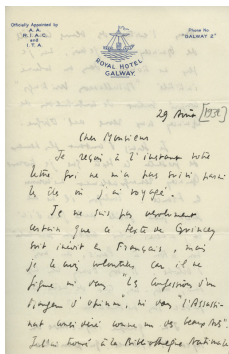 Officially Appointed by
A. A.
R. I. A. C.
and
I. T. A.
Phone No
"GALWAY 2"
ROYAL HOTEL
GALWAY.
29 Août [193?]
Cher Monsieur
Je reçois à l'instant votre
lettre qui ne m'a pas suivi parmi
les îles où j'ai voyagé.
Je ne suis pas absolument
certain que le texte de Quincey
soit inédit en Français, mais
je le crois volontiers car il ne
figure ni dans "les Confessions d'un
mangeur d'opium", ni dans "l'Assassi-
nat considéré comme un des beaux Arts".
trouvé à la Bibliothèque Nationale